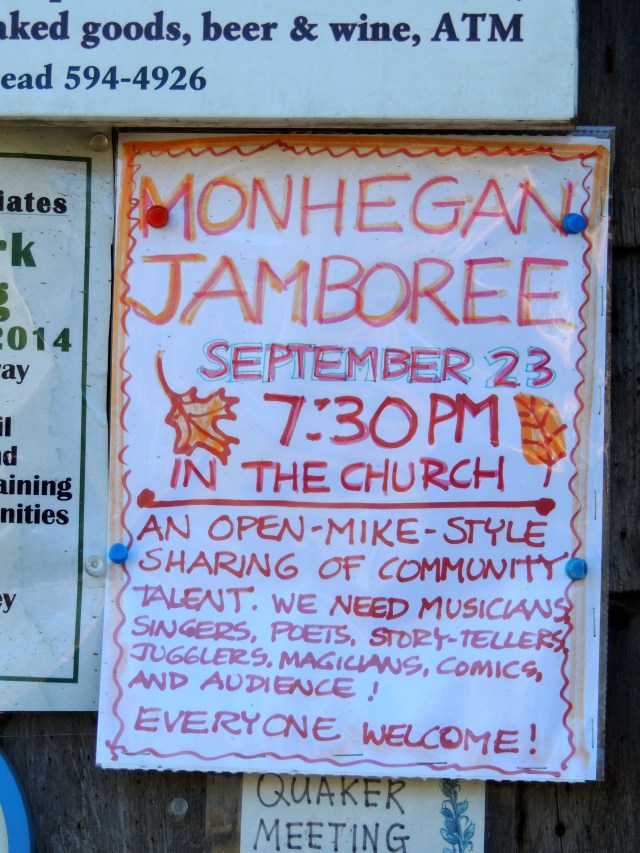 aked goods, beer & wine, ATM
ead 594-4926
iates
rk
s
2014
ay
il
d
aining
nities
ey
MONHEGAN
JAMBOREE
SEPTEMBER 23
7:30 PM
IN THE CHURCH
AN OPEN-MIKE-STYLE
SHARING OF COMMUNITY
TALENT. WE NEED MUSICIANS,
SINGERS, POETS, STORY-TELLERS,
JUGGLERS, MAGICIANS, COMICS,
AND AUDIENCE!
EVERYONE WELCOME!
QUAKER
MEETING